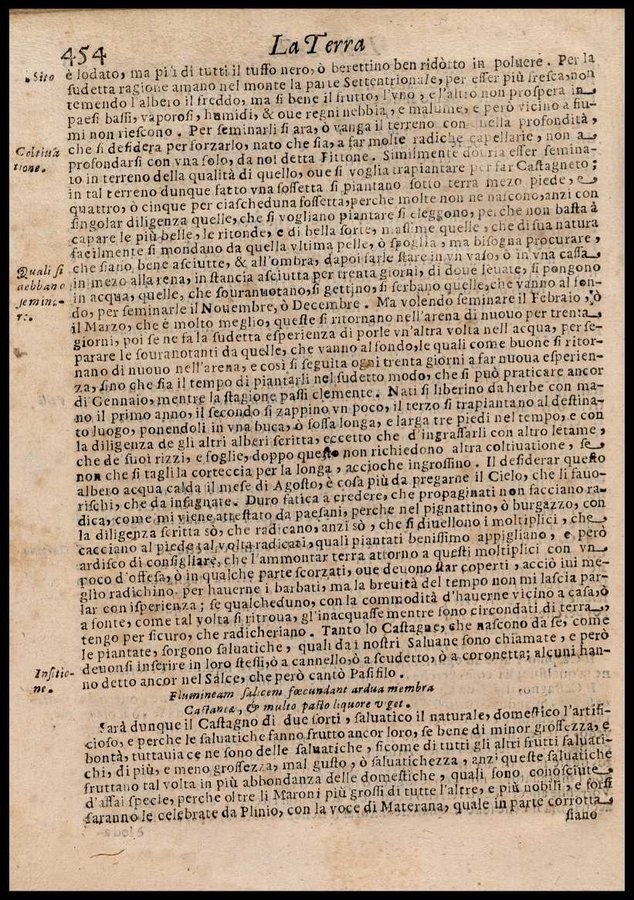 454
La Terra
è lodato, ma più di tutti il tuffo nero, ò berettino ben ridotto in poluere. Per la
Sito
sudetta ragione amano nel monte la parte Settentrionale, per esser più fresca, non
temendo l'albero il freddo, ma si bene il frutto, l'vno, e l'altro non prospera in
paesi bassi, vaporosi, humidi, & oue regni nebbia, e malume, e però vicino a fiu-
mi non riescono. Per seminarli si ara, ò vanga il terreno con quella profondità,
Coltiua
tione.
che si desidera per forzarlo, nato che sia, a far molte radiche capellarie, non a
profondarsi con vna solo, da noi detta Fittone. Similmente douria esser semina-
to in terreno della qualità di quello, oue si voglia trapiantare per far Castagneto;
in tal terreno dunque fatto vna fossetta si piantano sotto terra mezo piede, e
quattro, ò cinque per ciascheduna fossetta, perche molte non ne nascono, anzi con
singolar diligenza quelle, che si vogliano piantare si cleggono, perche non basta à
capare le più belle, le ritonde, e di bella sorte, massime quelle, che di sua natura
facilmente si mondano da quella vltima pelle, ò spoglia, ma bisogna procurare,
Quali si
debbano
semina-
re.
che siano bene asciutte, & all'ombra, dapoi farle stare in vn vaso, ò in vna cassa
in mezo alla rena, in stancia asciutta per trenta giorni, di doue leuate, si pongono
in acqua, quelle, che souranuotano, si gettino, si serbano quelle, che vanno al fon-
do, per seminarle il Nouembre, ò Decembre. Ma volendo seminare il Febraio, ò
il Marzo, che è molto meglio, queste si ritornano nell'arena di nuouo per trenta
giorni, poi se ne fa la sudetta esperienza di porle vn'altra volta nell acqua, per se-
parare le souranotanti da quelle, che vanno al fondo, le quali come buone si ritor-
nano di nuouo nell'arena, e così si seguita ogni trenta giorni a far nuoua esperien-
za, sino che sia il tempo di piantarli nel sudetto modo, che si può praticare ancor
di Gennaio, mentre la stagione passi clemente. Nati si liberino da herbe con ma-
no il primo anno, il secondo si zappino vn poco, il terzo si trapiantano al destina-
to luogo, ponendoli in vna buca, ò fossa longa, e larga tre piedi nel tempo, e con
la diligenza de gli altri alberi scritta, eccetto che d'ingrassarli con altro letame,
che de suoi rizzi, e foglie, doppo questo non richiedono altra coltiuatione, se
non che si tagli la corteccia per la longa, accioche ingrossino. Il desiderar questo
albero acqua calda il mese di Agosto, è cosa più da pregarne il Cielo, che li fauo-
rischi, che da insagnate. Duro fatica a credere, che propaginati non facciano ra-
dica, come mi viene attestato da paesani, perche nel pignattino, ò burgazzo, con
la diligenza scritta sò, che radicano, anzi sò, che si diuellono i moltiplici, che
cacciano al piede tal volta radicati, quali piantati benissimo appigliano, e però
ardisco di consigliare, che l'ammontar terra attorno a questi moltiplici con vn
poco d'offesa, ò in qualche parte scorzati, oue deuono star coperti, acciò iui me-
glio radichino per hauerne i barbati, ma la breuità del tempo non mi lascia par-
lar con isperienza; se qualcheduno, con la commodità d'hauerne vicino a casa, ò
a fonte, come tal volta si ritroua, gl'inacquasse mentre sono circondati di terra,
tengo per sicuro, che radicheriano. Tanto lo Castagne, che nascono da se, come
le piantate, sorgono saluatiche, quali da i nostri Saluane sono chiamate, e però
Insitio-
ne.
deuonsi inserire in loro stessi, ò a cannello, ò a scudetto, ò a coronetta; alcuni han-
no detto ancor nel Salce, che però cantò Pasifilo.
Flumineam salicem fœcundant ardua membra
Castaneæ, & multo pasto liquore vget.
Sarà dunque il Castagno di due sorti, saluatico il naturale, domestico l'artifi-
cioso, e perche le saluatiche fanno frutto ancor loro, se bene di minor grossezza, e
bontà, tuttauia ce ne sono delle saluatiche, sicome di tutti gli altri frutti saluati-
chi, di più, e meno grossezza, mal gusto, ò saluatichezza, anzi queste saluatiche
fruttano tal volta in più abbondanza delle domestiche, quali sono conosciute
d'assai specie, perche oltre li Maroni più grossi di tutte l'altre, e più nobili, e forsi
saranno le celebrate da Plinio, con la voce di Materana, quale in parte corrotta
siano